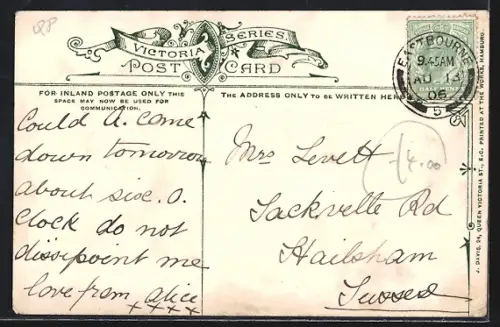 VICTORIA SERIES.
POST CARD
FOR INLAND POSTAGE ONLY THIS
SPACE MAY NOW BE USED FOR
COMMUNICATION.
THE ADDRESS ONLY TO BE WRITTEN HERE
EASTBOURNE
9.45AM
AU 13
06
5
Could A. come
down tomorrow
about sixe. O.
Clock do not
dissipoint me
love from alice
x x x x
Mrs Levett
Sackville Rd
Hailsham
Sussex
4.00
J. DAVIS, 24, QUEEN VICTORIA ST., E.C. PRINTED AT THE WORKS, HAMBURG.